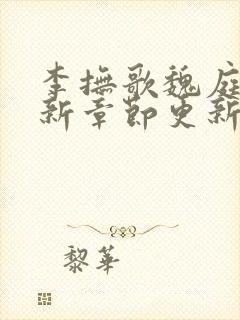 李撫歌魏庭
新章節更新
黎華